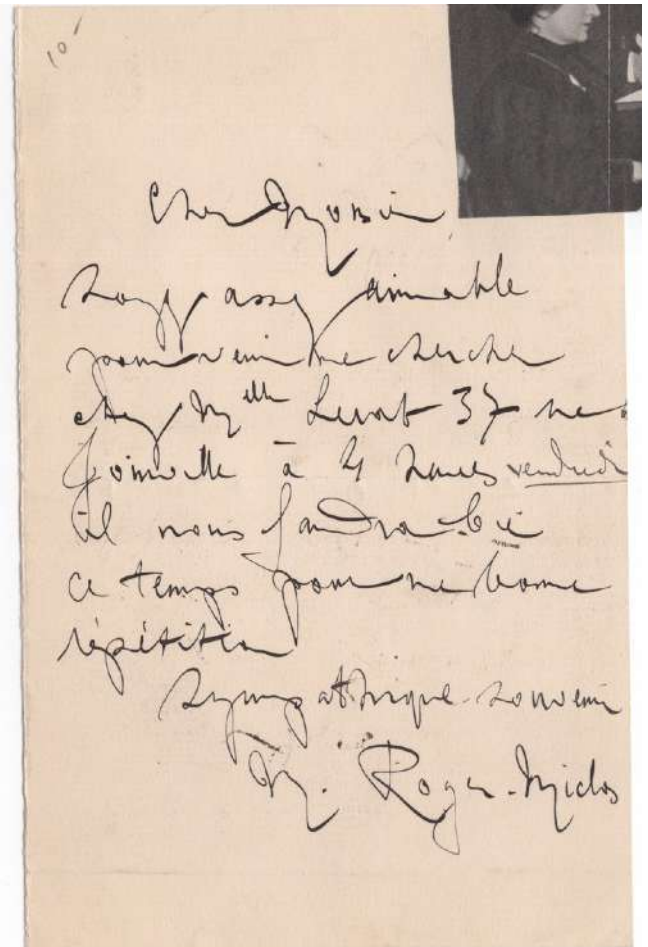 10-
Cher Monsieur,
Soyez assez aimable
pour venir me chercher
chez Mlle 37 rue
Joinville à 4 heures vendredi
il nous faudra bien
ce temps pour une bonne
répétition
Sympathique souvenir
M. Roger-Miclos